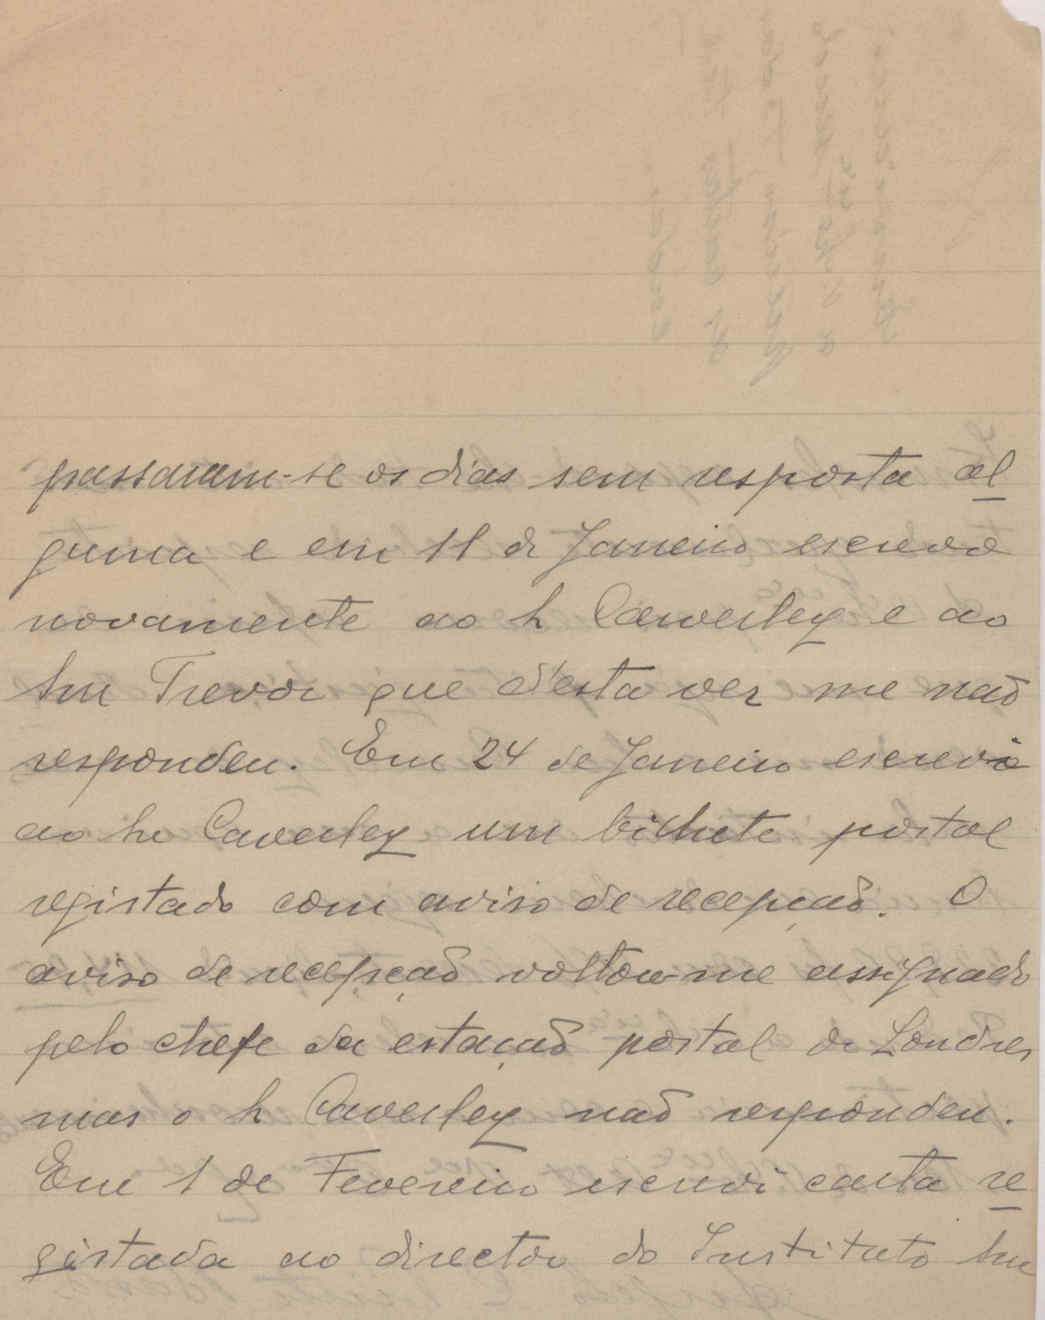 passaram-se os dias sem resposta al
guma e em 11 de Janeiro escrevo
novamente ao h Caverley e ao
Snr Trevor que d'esta vez me não
respondeu. Em 24 de Janeiro escrevi
ao h Caverley um bilhete postal
registado com aviso de recepção. O
aviso de recepção voltou-me assignado
pelo chefe da estação postal de Londres
mas o h Caverley não respondeu.
Em 1 de Fevereiro escrevi carta re
gistada ao director do Instituto Snr